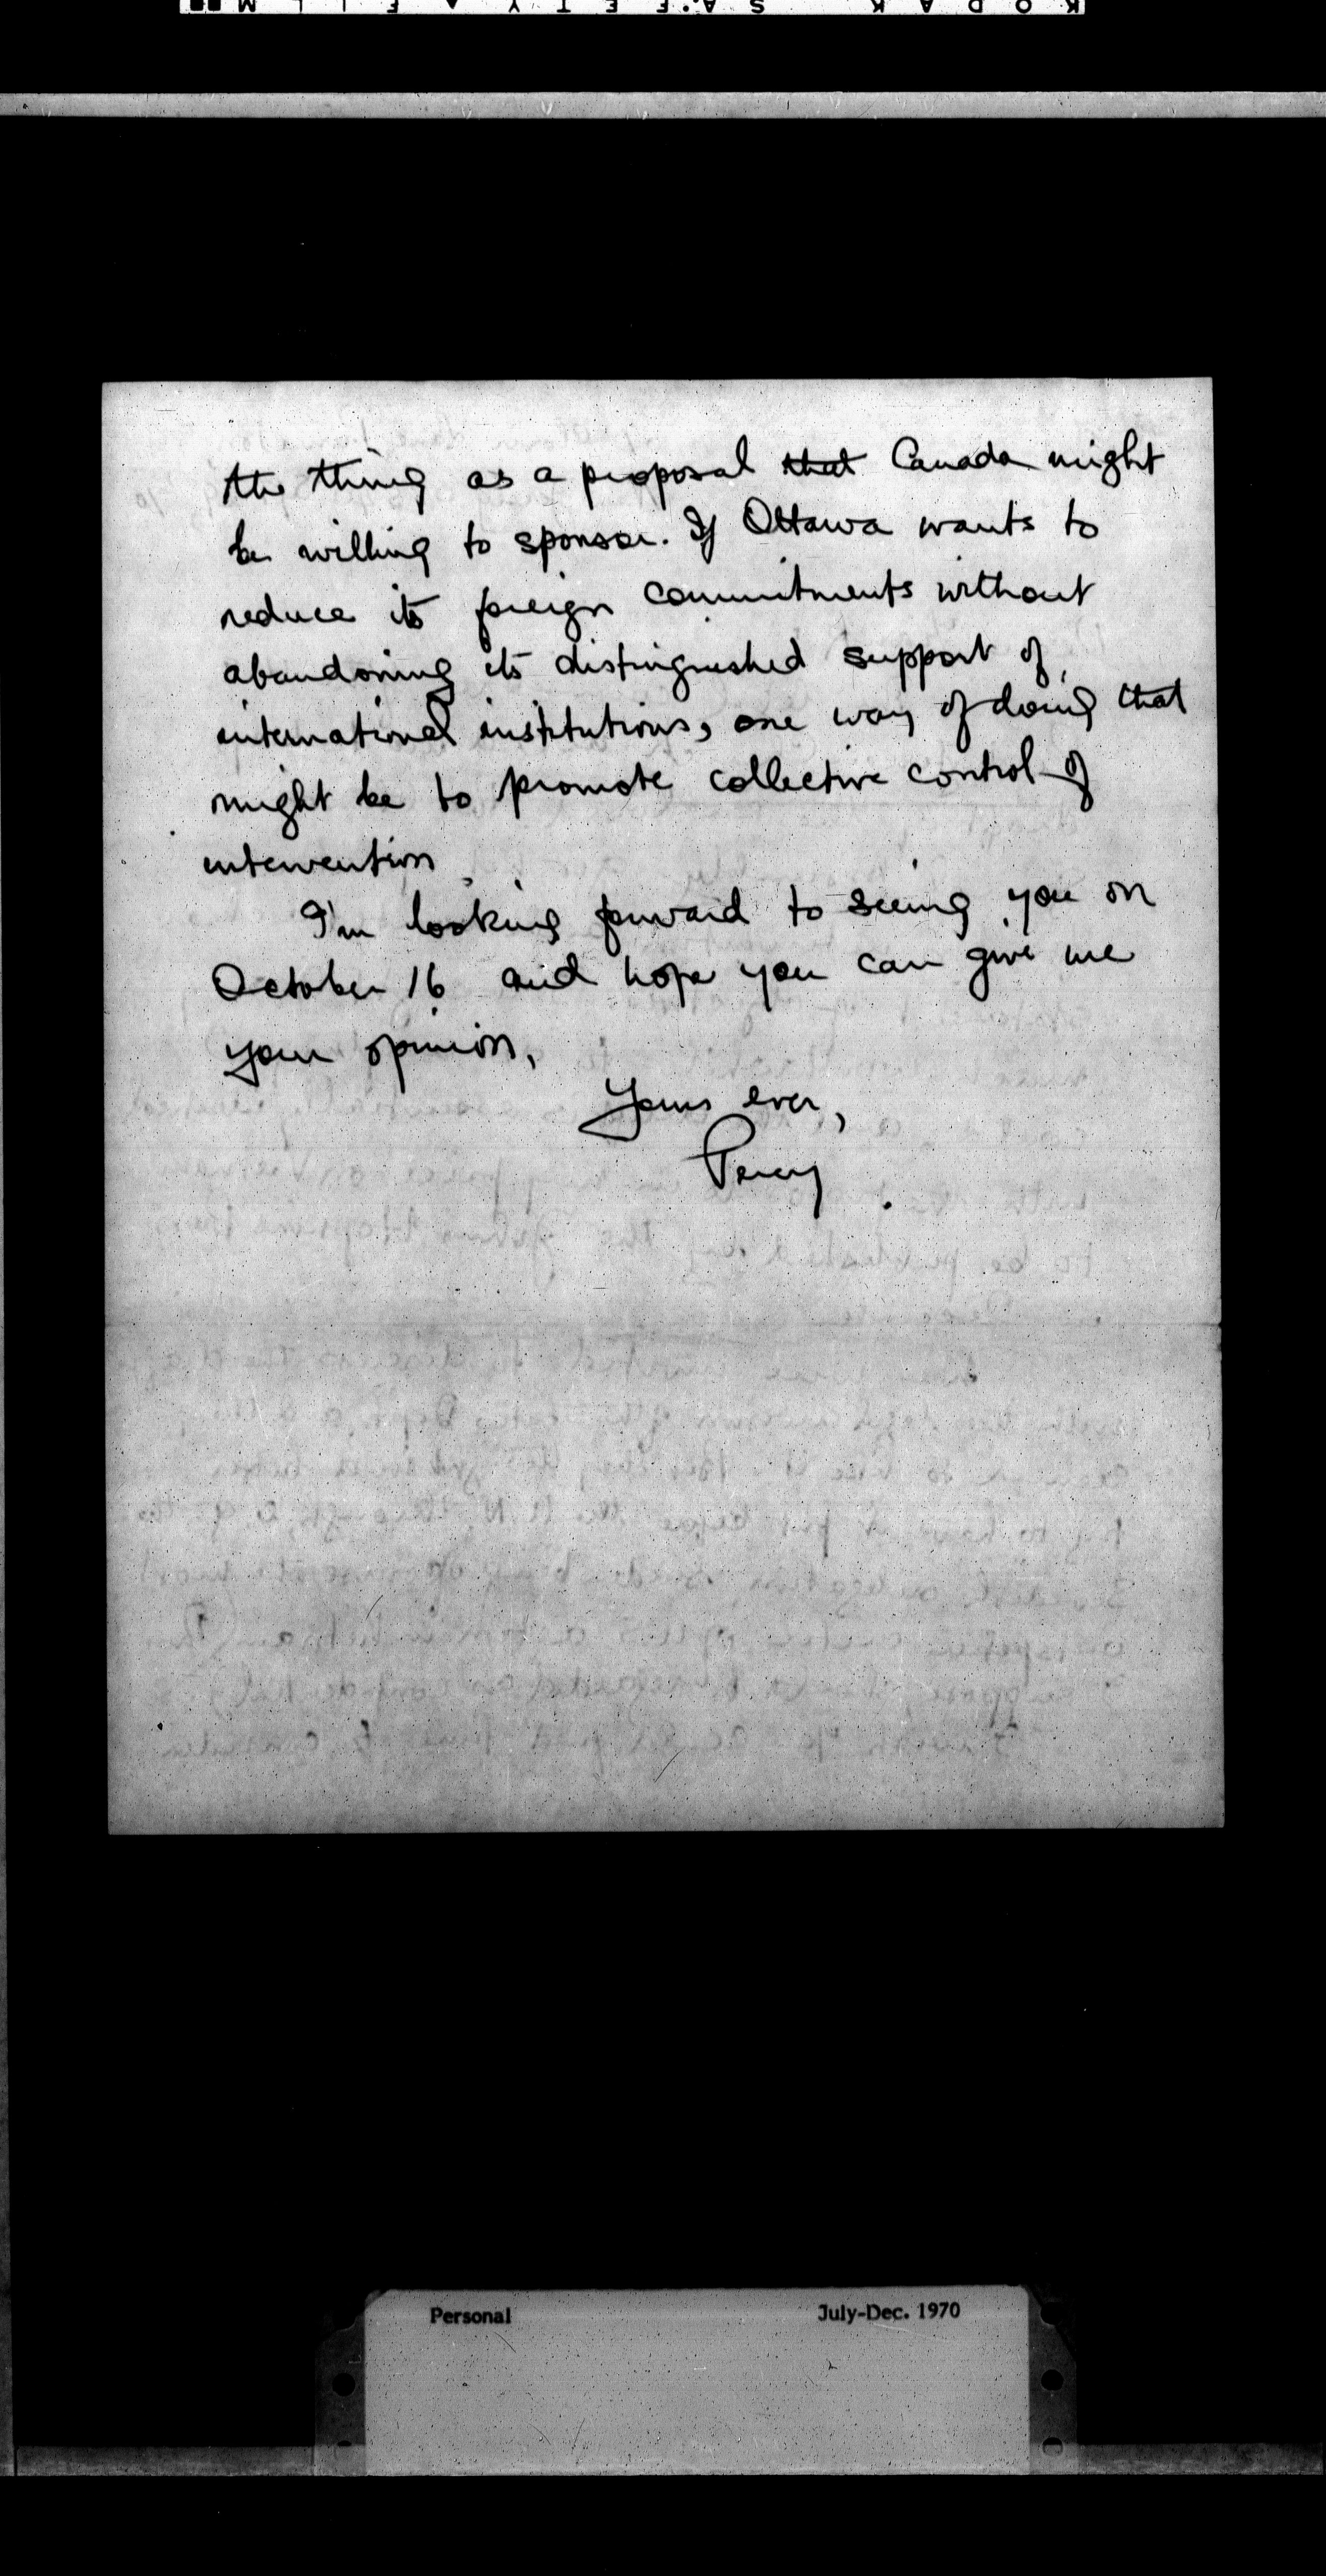 KODAK SAFETY FILM
the thing as a proposal that Canada might
be willing to sponsor. If Ottawa wants to
reduce its foreign commitments without
abandoning its distinguished support of
international institutions, one way of doing that
might be to promote collective control of
intervention.
I'm looking forward to seeing you on
October 16 and hope you can give me
your opinion.
Yours ever,
Percy
Personal July-Dec. 1970